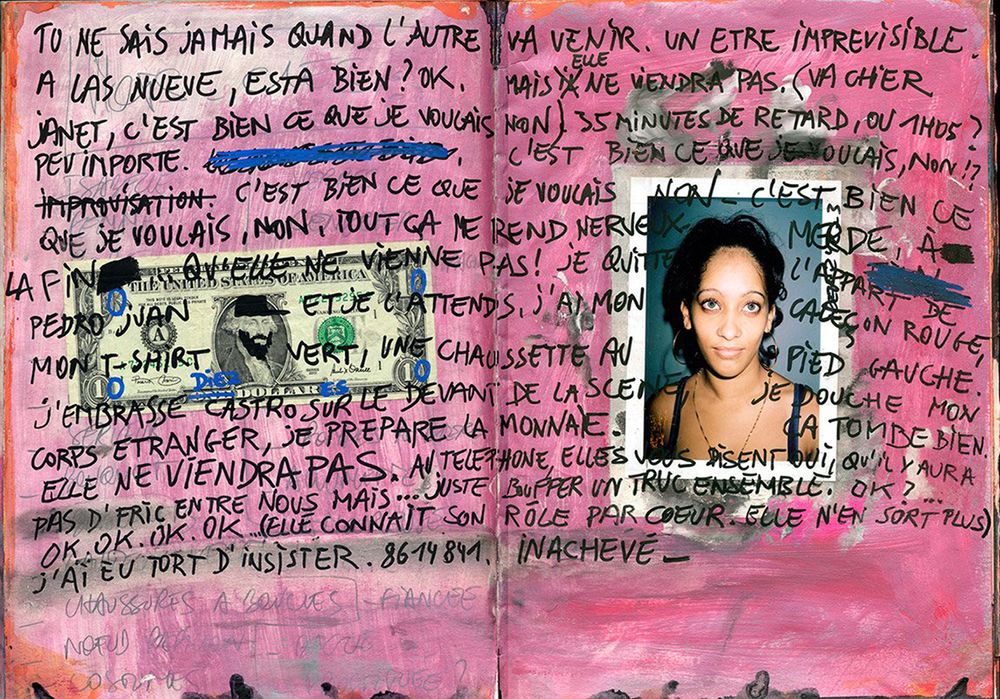 TU NE SAIS JAMAIS QUAND L'AUTRE VA VENIR. UN ETRE IMPREVISIBLE.
A LAS NUEVE, ESTA BIEN? OK. MAIS ELLE NE VIENDRA PAS. (VA CHIER
JANET, C'EST BIEN CE QUE JE VOULAIS NON). 35 MINUTES DE RETARD, OU 1H05?
PEU IMPORTE. C'EST BIEN CE QUE JE VOULAIS, NON!?
IMPROVISATION. C'EST BIEN CE QUE JE VOULAIS NON_ C'EST BIEN CE
QUE JE VOULAIS, NON, TOUT ÇA ME REND NERVEUX. MERDE, À
LA FIN QU'ELLE NE VIENNE PAS! JE QUITTE L'APPART DE
THE UNITED STATES OF AMERICA
PEDRO JUAN ET JE L'ATTENDS, J'AI MON CALEÇON ROUGE,
MON T-SHIRT VERT, UNE CHAUSSETTE AU PIED GAUCHE.
DIEZ DOLLAR ES
J'EMBRASSE CASTRO SUR LE DEVANT DE LA SCENE, JE DOUCHE MON
CORPS ETRANGER, JE PREPARE LA MONNAIE. ÇA TOMBE BIEN.
ELLE NE VIENDRA PAS. AU TELEPHONE, ELLES VOUS DISENT OUI, QU'IL Y AURA
PAS D'FRIC ENTRE NOUS MAIS... JUSTE BOUFFER UN TRUC ENSEMBLE. OK?...
OK. OK. OK. OK. (ELLE CONNAÎT SON RÔLE PAR COEUR. ELLE N'EN SORT PLUS)
J'AI EU TORT D'INSISTER. 8614841. INACHEVÉ_
CHAUSSURES A BOUCLES FIANCÉE
NŒUD